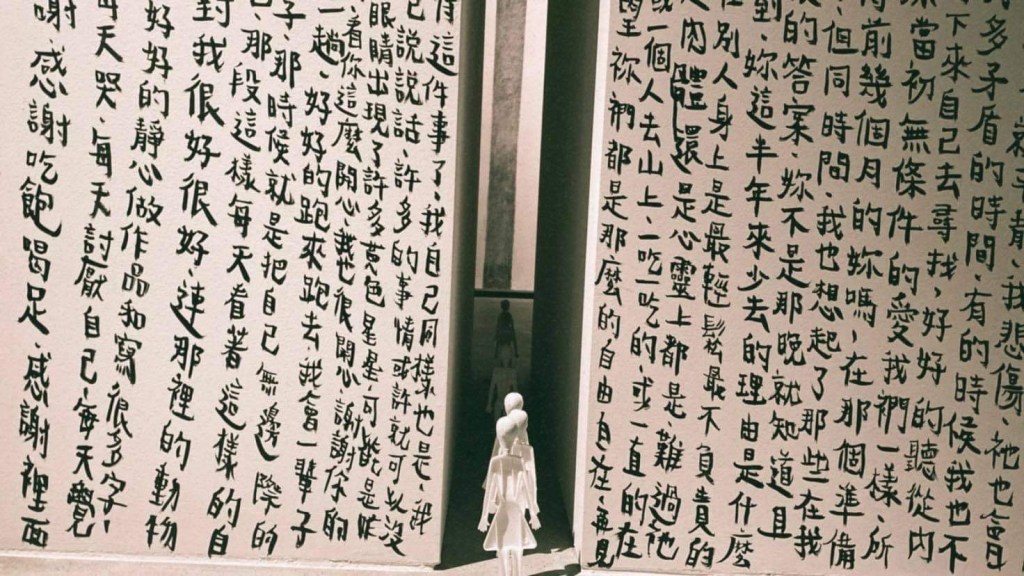 我悲傷、祂也會
多矛盾的時間、有的時候我也不
下來自己去尋找、好好的聽從內
當初無條件的愛我們一樣、所
前幾個月的妳嗎、在那個準備
但同時間、我也想起了那些在我
的答案、妳不是那晚就知道且
到、妳這半年來少去的理由是什麼
在別人身上是最輕鬆最不負責的
是肉體還是心靈上都是、難過他
或一個人去山上、一吃一吃的、或一直的在
望祢們都是那麼的自由自在、再見
得這件事了、我自己同樣也是、
說說話、許多的事情或許就可以沒
眼睛出現了許多黃色星星、可能是忙
看你這麼開心、我也很開心、謝謝你的
一趟、好好的跑來跑去我會一輩子
子、那時候就是把自己無邊際的
那段這樣每天看著這樣的自
對我很好很好、連那裡的動物
好好的靜心做作品和寫很多字、
每天哭、每天討厭自己、每天覺
謝、感謝吃飽喝足、感謝裡面